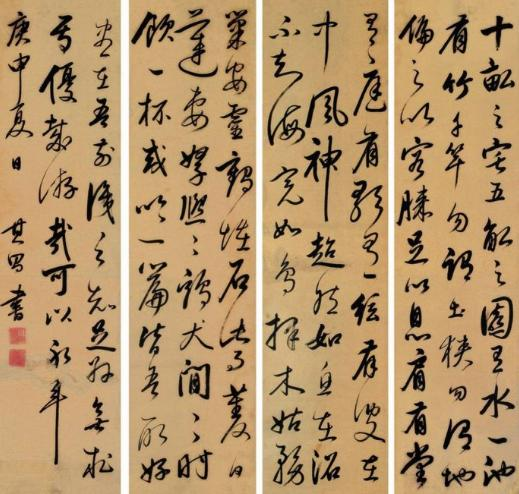 十畝之宅五畝之園有水一池
有竹千竿勿謂土狹勿謂地
偏足以容膝足以息肩有堂
有庭有歌有絃有叟在
中風神超然如魚在沼
不知海寬如鳥擇木姑務
巢安靈鶴怪石紫菱白
蓮妻孥熙熙雞犬閒閒時
飲一杯或吟一篇皆吾所好
盡在吾前知足外無求
焉優哉游哉可以永年
庚申夏日
其昌書